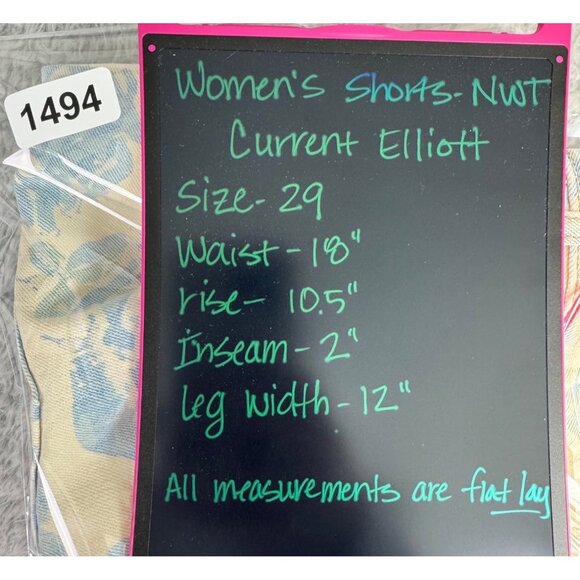 1494
Women's Shorts - NWT
Current Elliott
Size - 29
Waist - 18"
rise - 10.5"
Inseam - 2"
Leg width - 12"
All measurements are flat lay